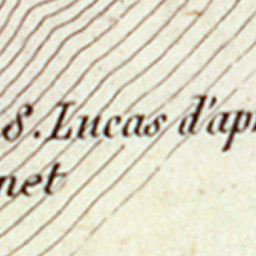 S. Lucas d'ap
net